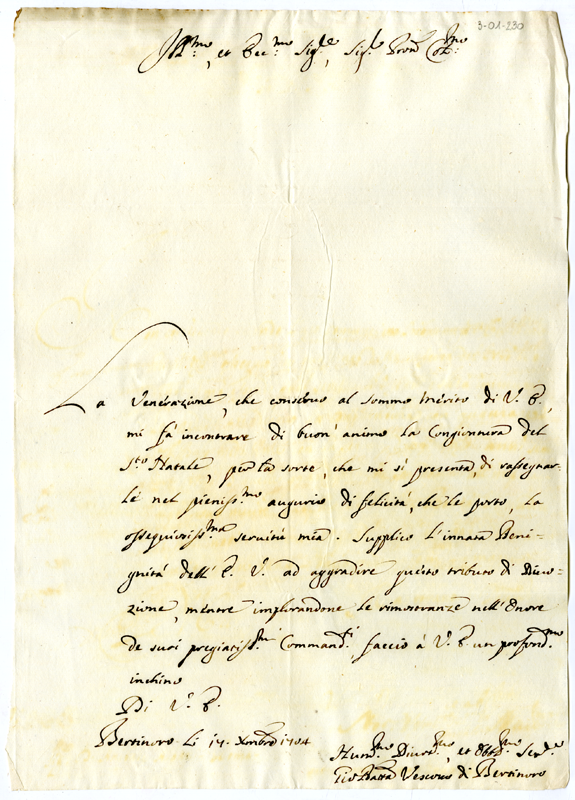 3-01-230
Ill.mo, et Ecc.mo Sig.re, Sig.re Pron Col.mo
La Venerazione, che conservo al sommo merito di V. E.,
mi fà incontrare di buon'animo la Congiontura del
S.to Natale, per la sorte, che mi si presenta, di rassegnar-
le nel pieniss.mo augurio di felicità, che le porto, la
ossequiosiss.ma servitù mia. Supplico l'innata Beni-
gnità dell'E. V. ad aggradire questo tributo di Divo-
zione, mentre implorandone le rimostranze nell'Onore
de suoi pregiatiss.mi Command.ti, faccio à V. E. un profond.mo
inchino
Di V. E.
Bertinoro li 14 Xmbre 1704
Hum.mo Divot.mo, et Obl.mo Ser.re
Gio Batta Vescovo di Bertinoro